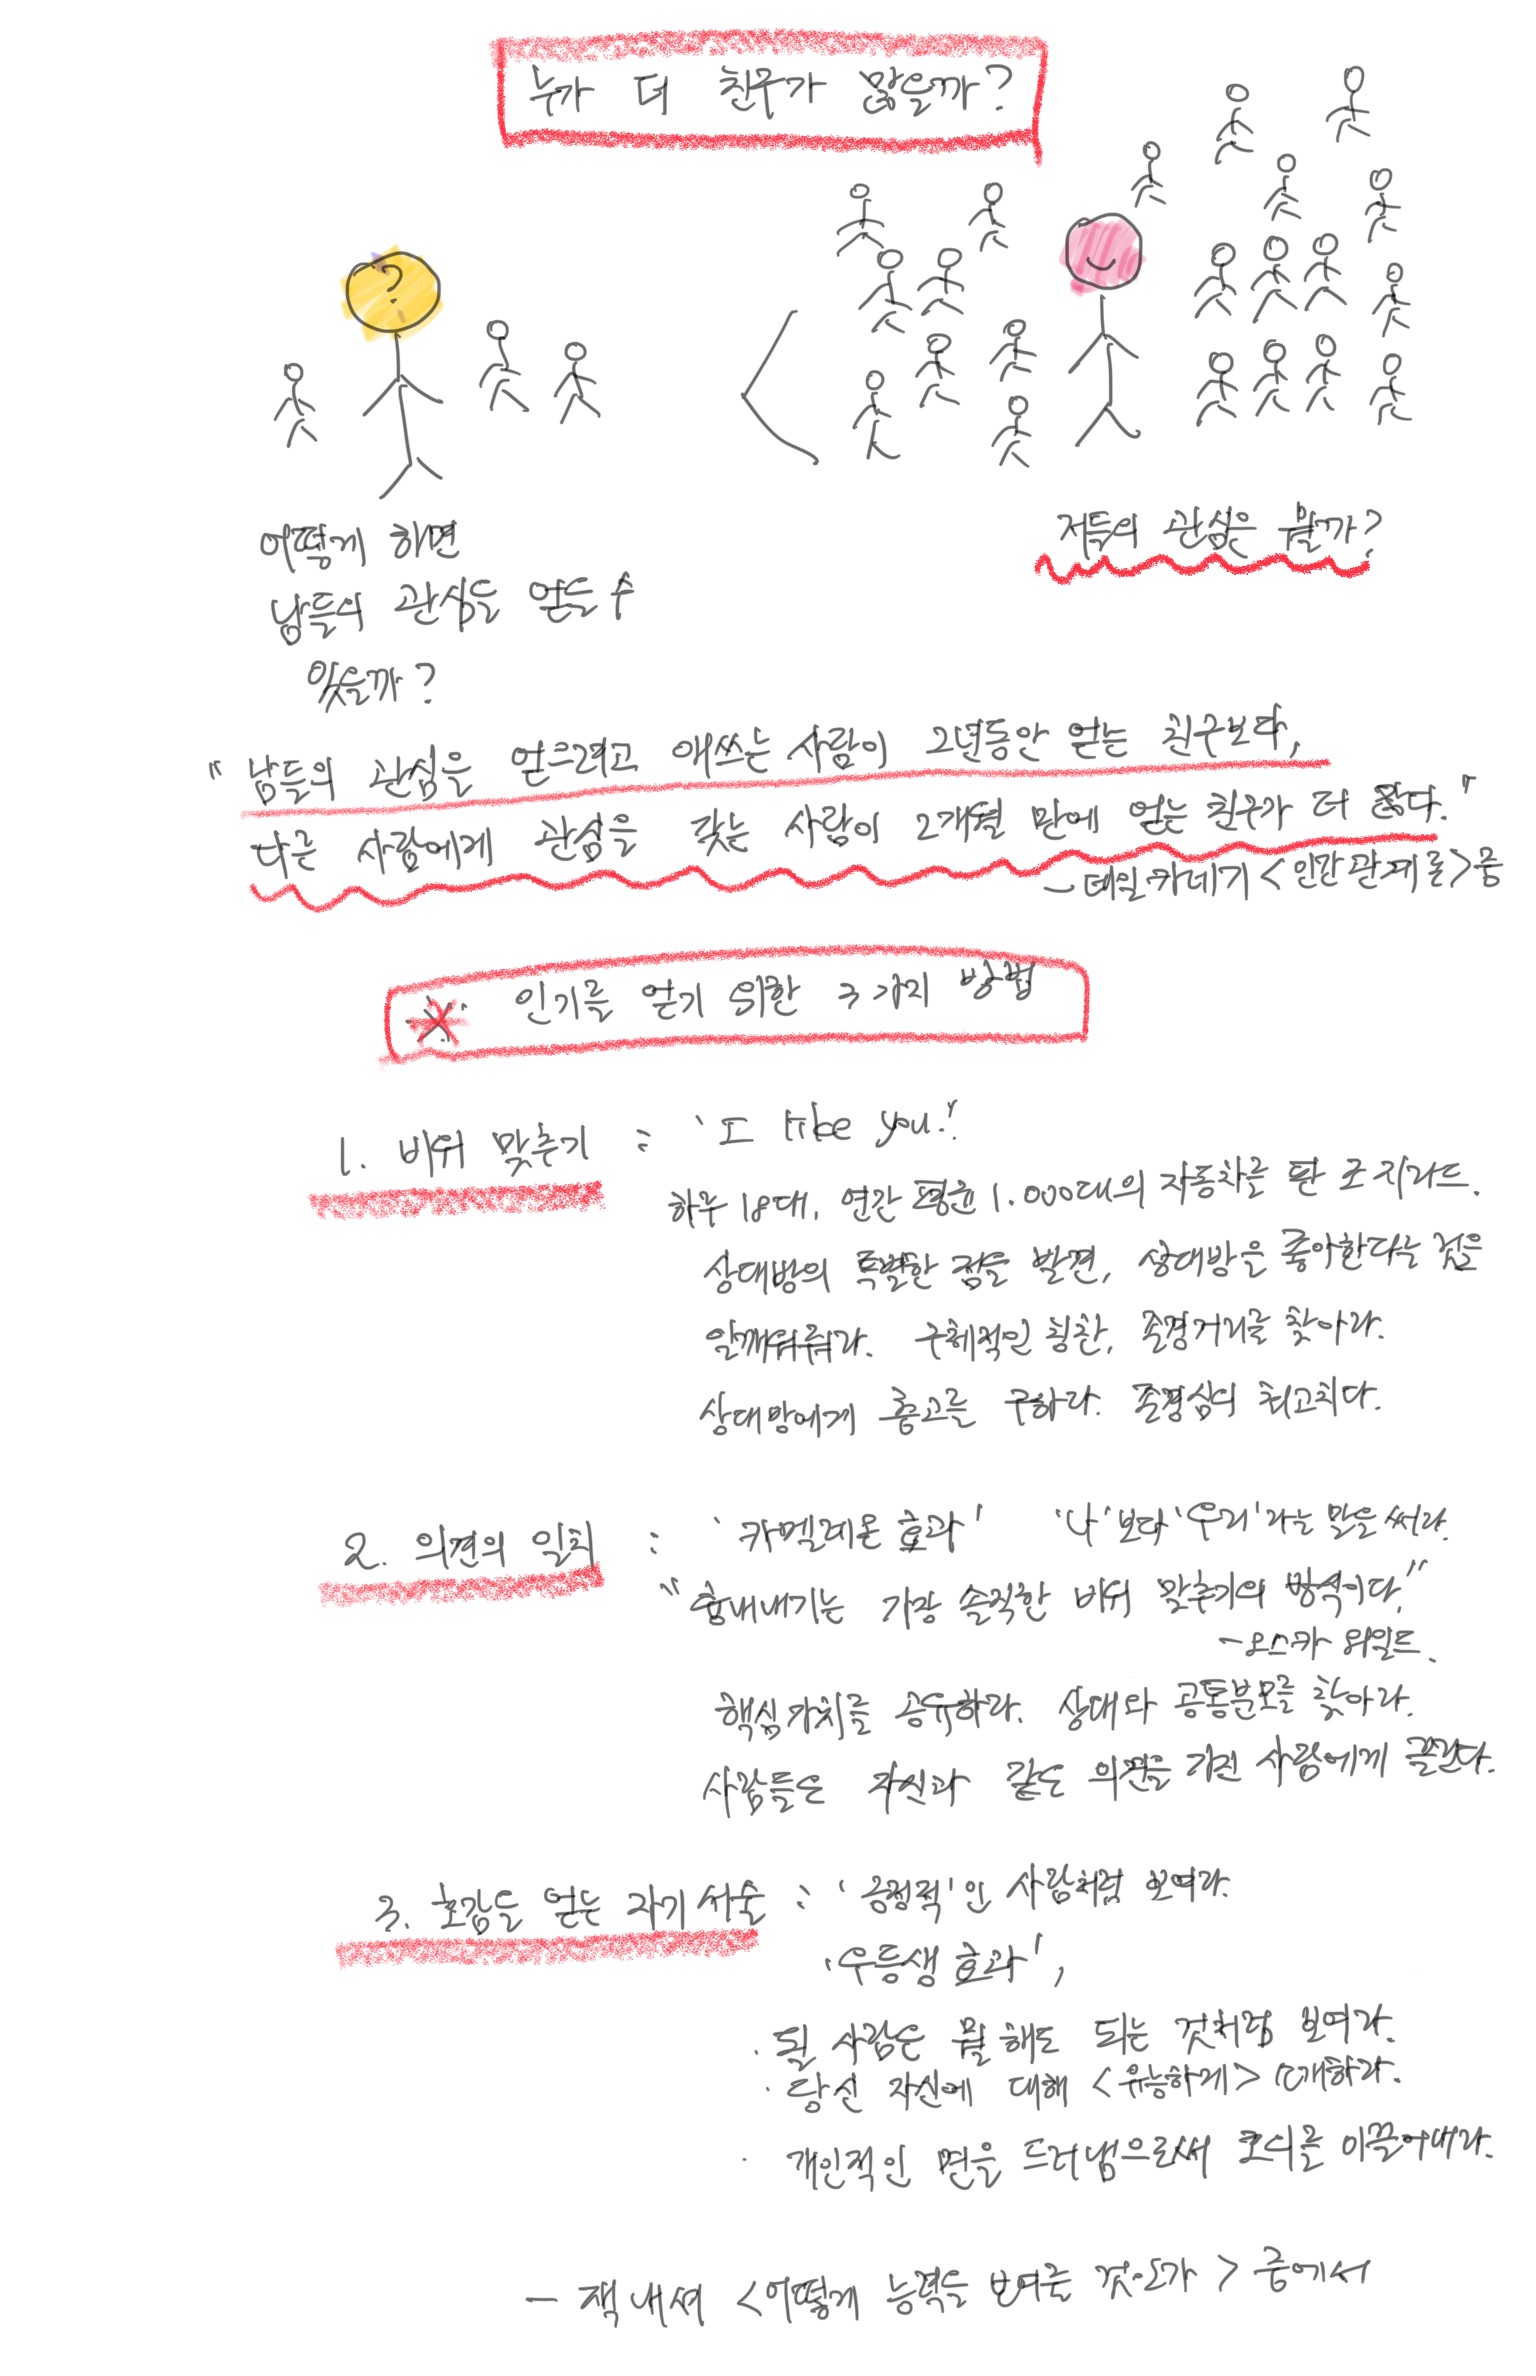 누가 더 친구가 많을까?
?
어떻게 하면
남들의 관심을 얻을 수
있을까?
저들의 관심은 뭘까?
"남들의 관심을 얻으려고 애쓰는 사람이 2년동안 얻는 친구보다,
다른 사람에게 관심을 갖는 사람이 2개월 만에 얻는 친구가 더 많다."
- 데일카네기 <인간관계론> 중
※ 인기를 얻기 위한 3가지 방법
1. 비위 맞추기 : 'I like you!'
하루 18대, 연간 평균 1.000대의 자동차를 판 조 지라드.
상대방의 특별한 점을 발견, 상대방을 좋아한다는 것을
일깨워줘라. 구체적인 칭찬, 존경거리를 찾아라.
상대방에게 충고를 구하라. 존경심의 최고치다.
2. 의견의 일치 : '카멜레온 효과' '나'보다 '우리'라는 말을 써라.
"흉내내기는 가장 솔직한 비위 맞추기의 방식이다."
- 오스카 와일드.
핵심가치를 공유하라. 상대와 공통분모를 찾아라.
사람들은 자신과 같은 의견을 가진 사람에게 끌린다.
3. 호감을 얻는 자기 서술 : '긍정적'인 사람처럼 보여라.
'우등생 효과',
· 될 사람은 뭘 해도 되는 것처럼 보여라.
· 당신 자신에 대해 <유능하게> 소개하라.
· 개인적인 면을 드러냄으로써 호의를 이끌어내라.
- 잭 내셔 <어떻게 능력을 보여줄 것인가> 중에서